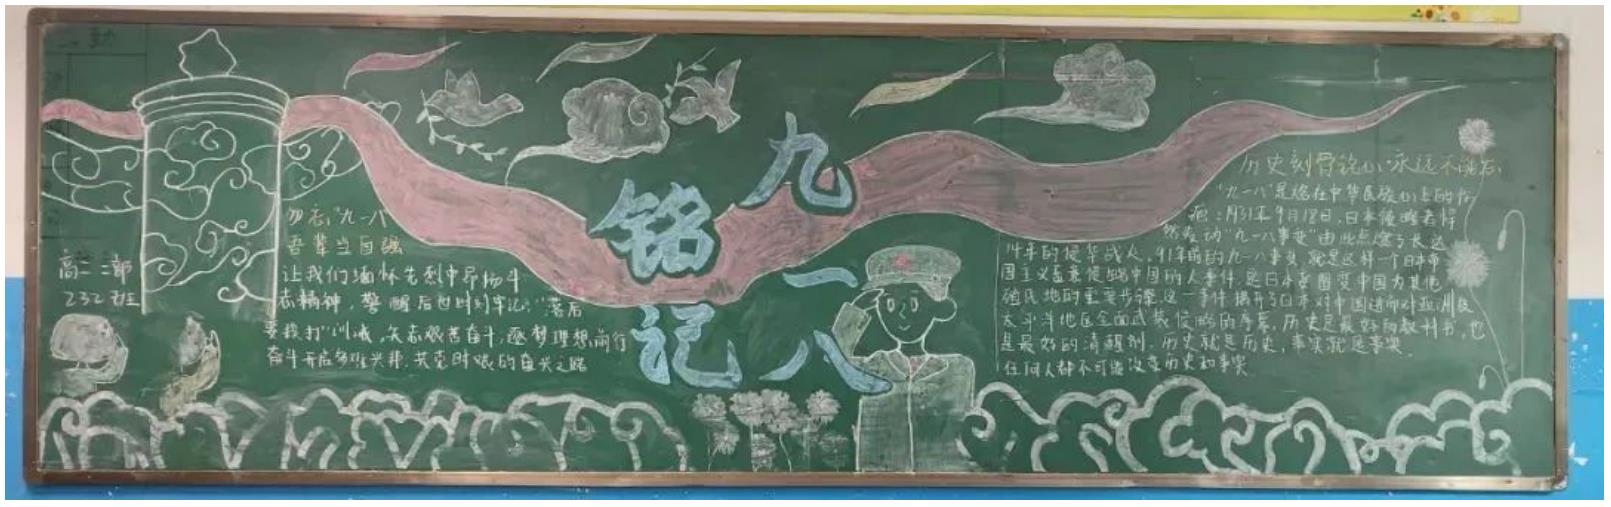 高二 二部
232班
勿忘"九一八"
吾辈当自强
让我们缅怀先烈中昂扬斗
志精神,警醒后世时刻牢记:"落后
要挨打"训诫,矢志艰苦奋斗,逐梦理想前行
奋斗开启多难兴邦,共克时艰的复兴之路
铭记
九一八
历史刻骨铭心 永远不能忘
"九一八"是烙在中华民族心上的伤
疤:1931年9月18日,日本侵略者悍
然发动"九一八事变"由此点燃了长达
14年的侵华战火,91年前的九一八事变,就是这样一个日本帝
国主义蓄意侵略中国的大事件,是日本企图变中国为其他
殖民地的重要步骤,这一事件揭开了日本对中国进而对亚洲及
太平洋地区全面武装侵略的序幕,历史是最好的教科书,也
是最好的清醒剂,历史就是历史,事实就是事实,
任何人都不可能改变历史和事实